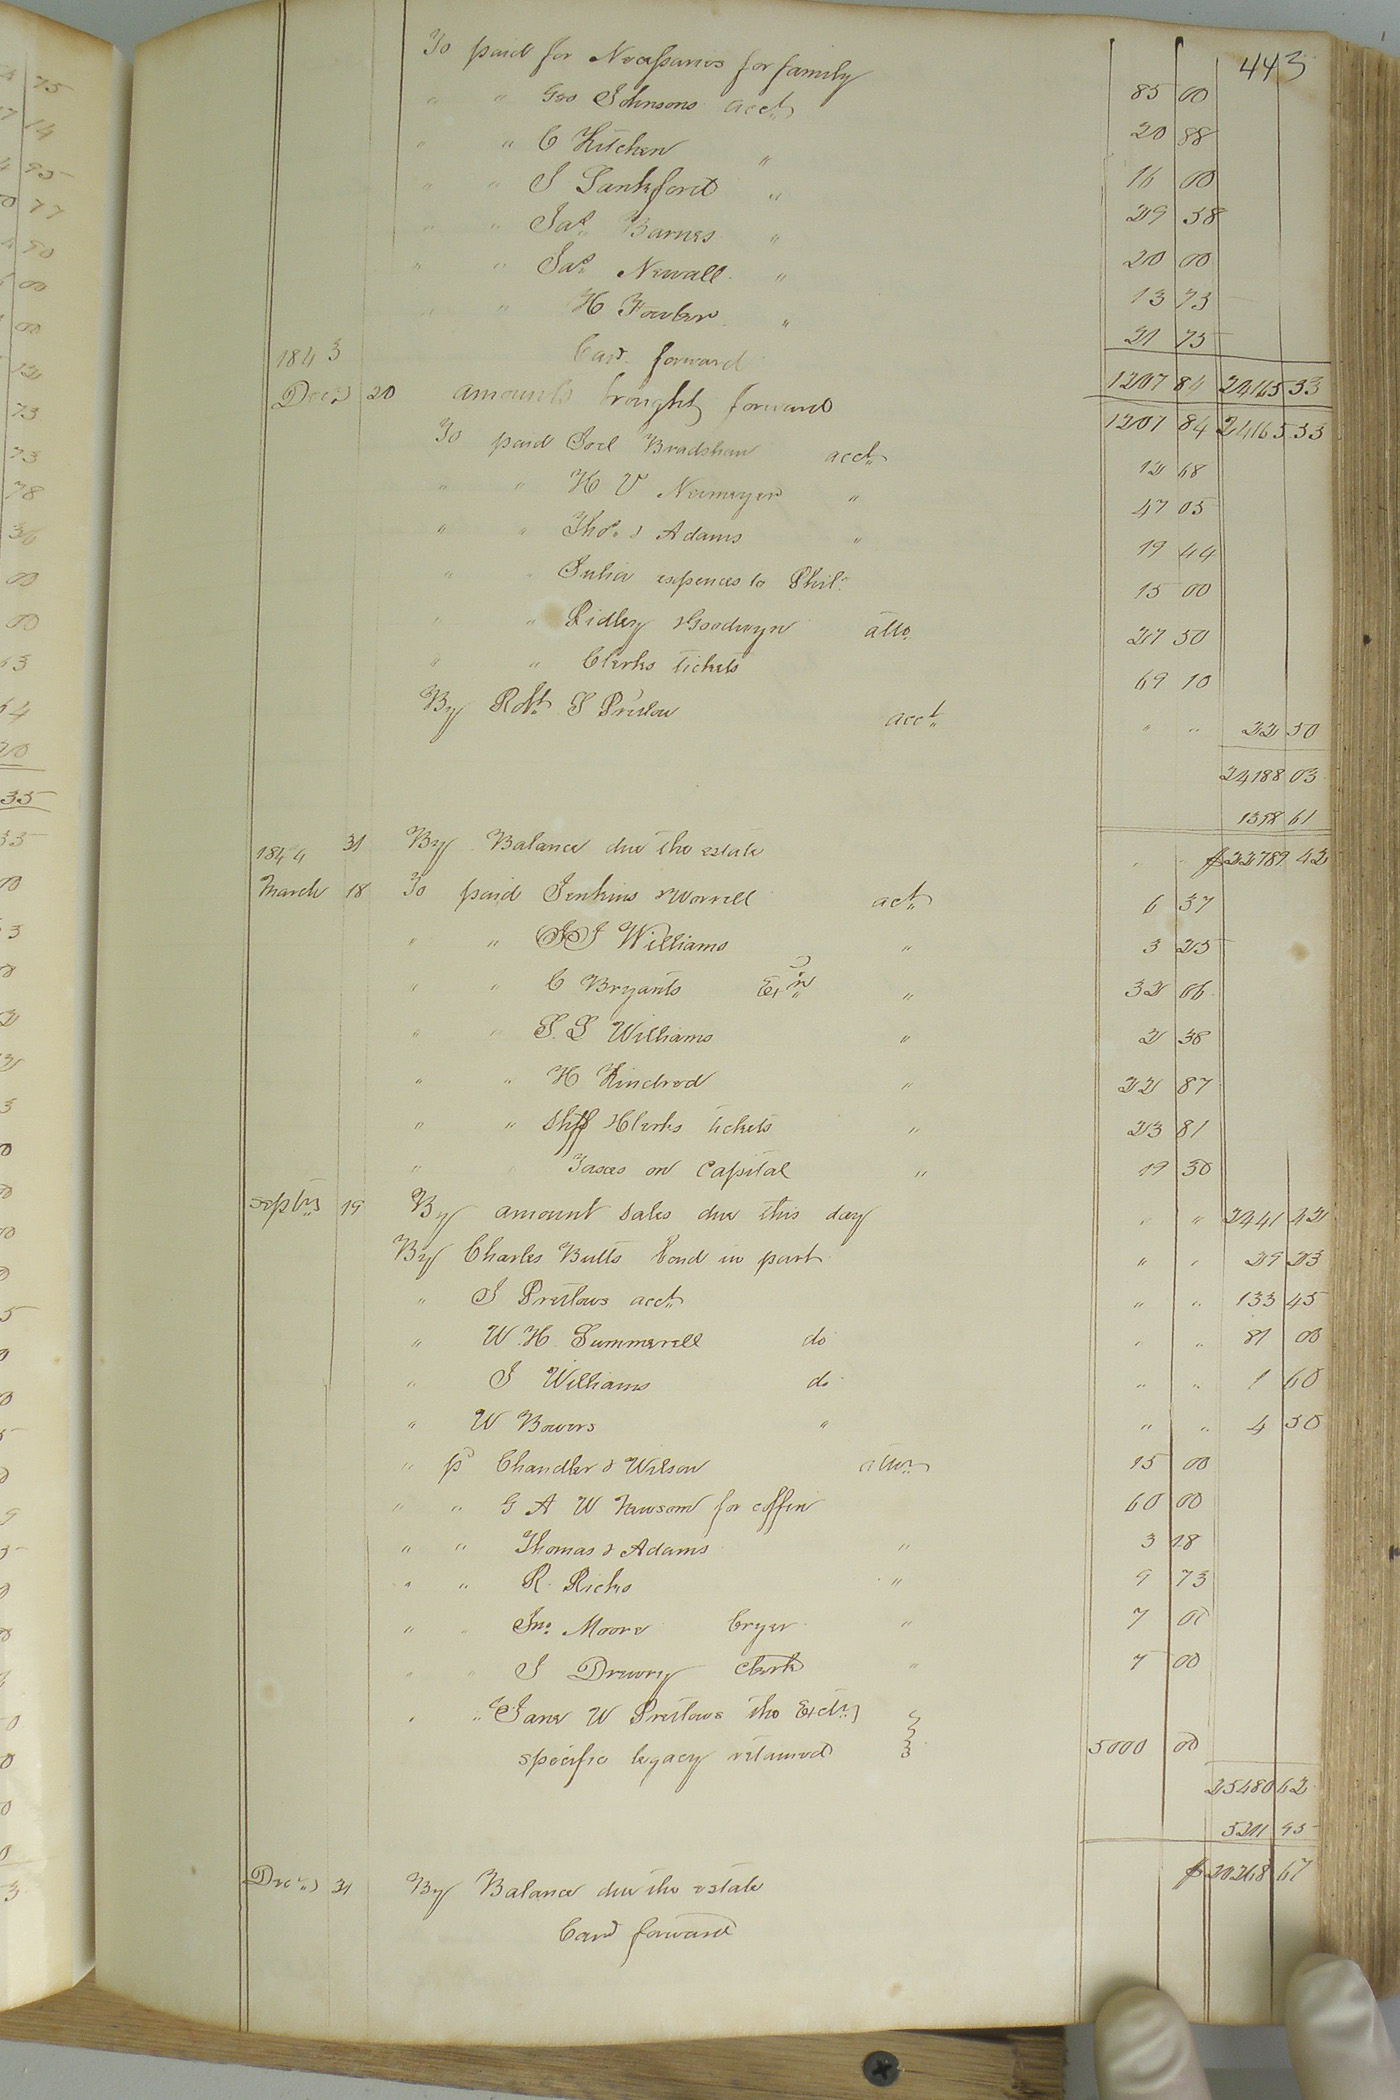 443
To paid for Necessaries for family 85 00
" " Geo Johnsons acct 20 88
" " C Kitchen " 16 00
" " J Lankford " 29 58
" " Jas Barnes " 20 00
" " Jas Newall " 13 73
" " H Fowler " 21 75
1843 Card forward 1207 84 24165 53
Decr 20 amounts brought forward 1207 84 24165 53
To paid Joel Bradshaw acct 12 68
" " H V Neimeyer " 47 05
" " Thos & Adams " 19 44
" " Julia expences to Phil 15 00
" " Ridley & Goodwyn atto 27 50
" " Clerks tickets 69 10
By Robt S Pretlow acct " " 22 50
24188 03
1398 61
31 By Balance due the estate " " $22789 42
1844
March 18 To paid Jenkins & Worrell act 6 37
" " Williams " 3 25
" " C Bryants Exr " 32 66
" " S. S Williams " 2 38
" " H Kindred " 22 87
" " Shff & Clerks tickets " 23 81
" " Taxes on Capital " 19 30
Septr 19 By amount sales due this day " " 2441 42
By Charles Butts bond in part " " 29 23
" J Pretlows acct " " 133 45
" W. H. Summerell do " " 81 00
" J Williams do " " 1 60
" W Bowers " " " 4 50
" pd Chandler & Wilson 15 00
" " G A W Newsom for coffin 60 00
" " Thomas & Adams " 3 18
" " R. Ricks " 9 73
" " Jno Moore Cryer " 7 00
" " J Drewry Clerk " 7 00
" " Jane W Pretlows the Extrx
specific legacy retained 5000 00
25480 62
5211 95
Decr 31 By Balance due the estate $20268 67
Card forward